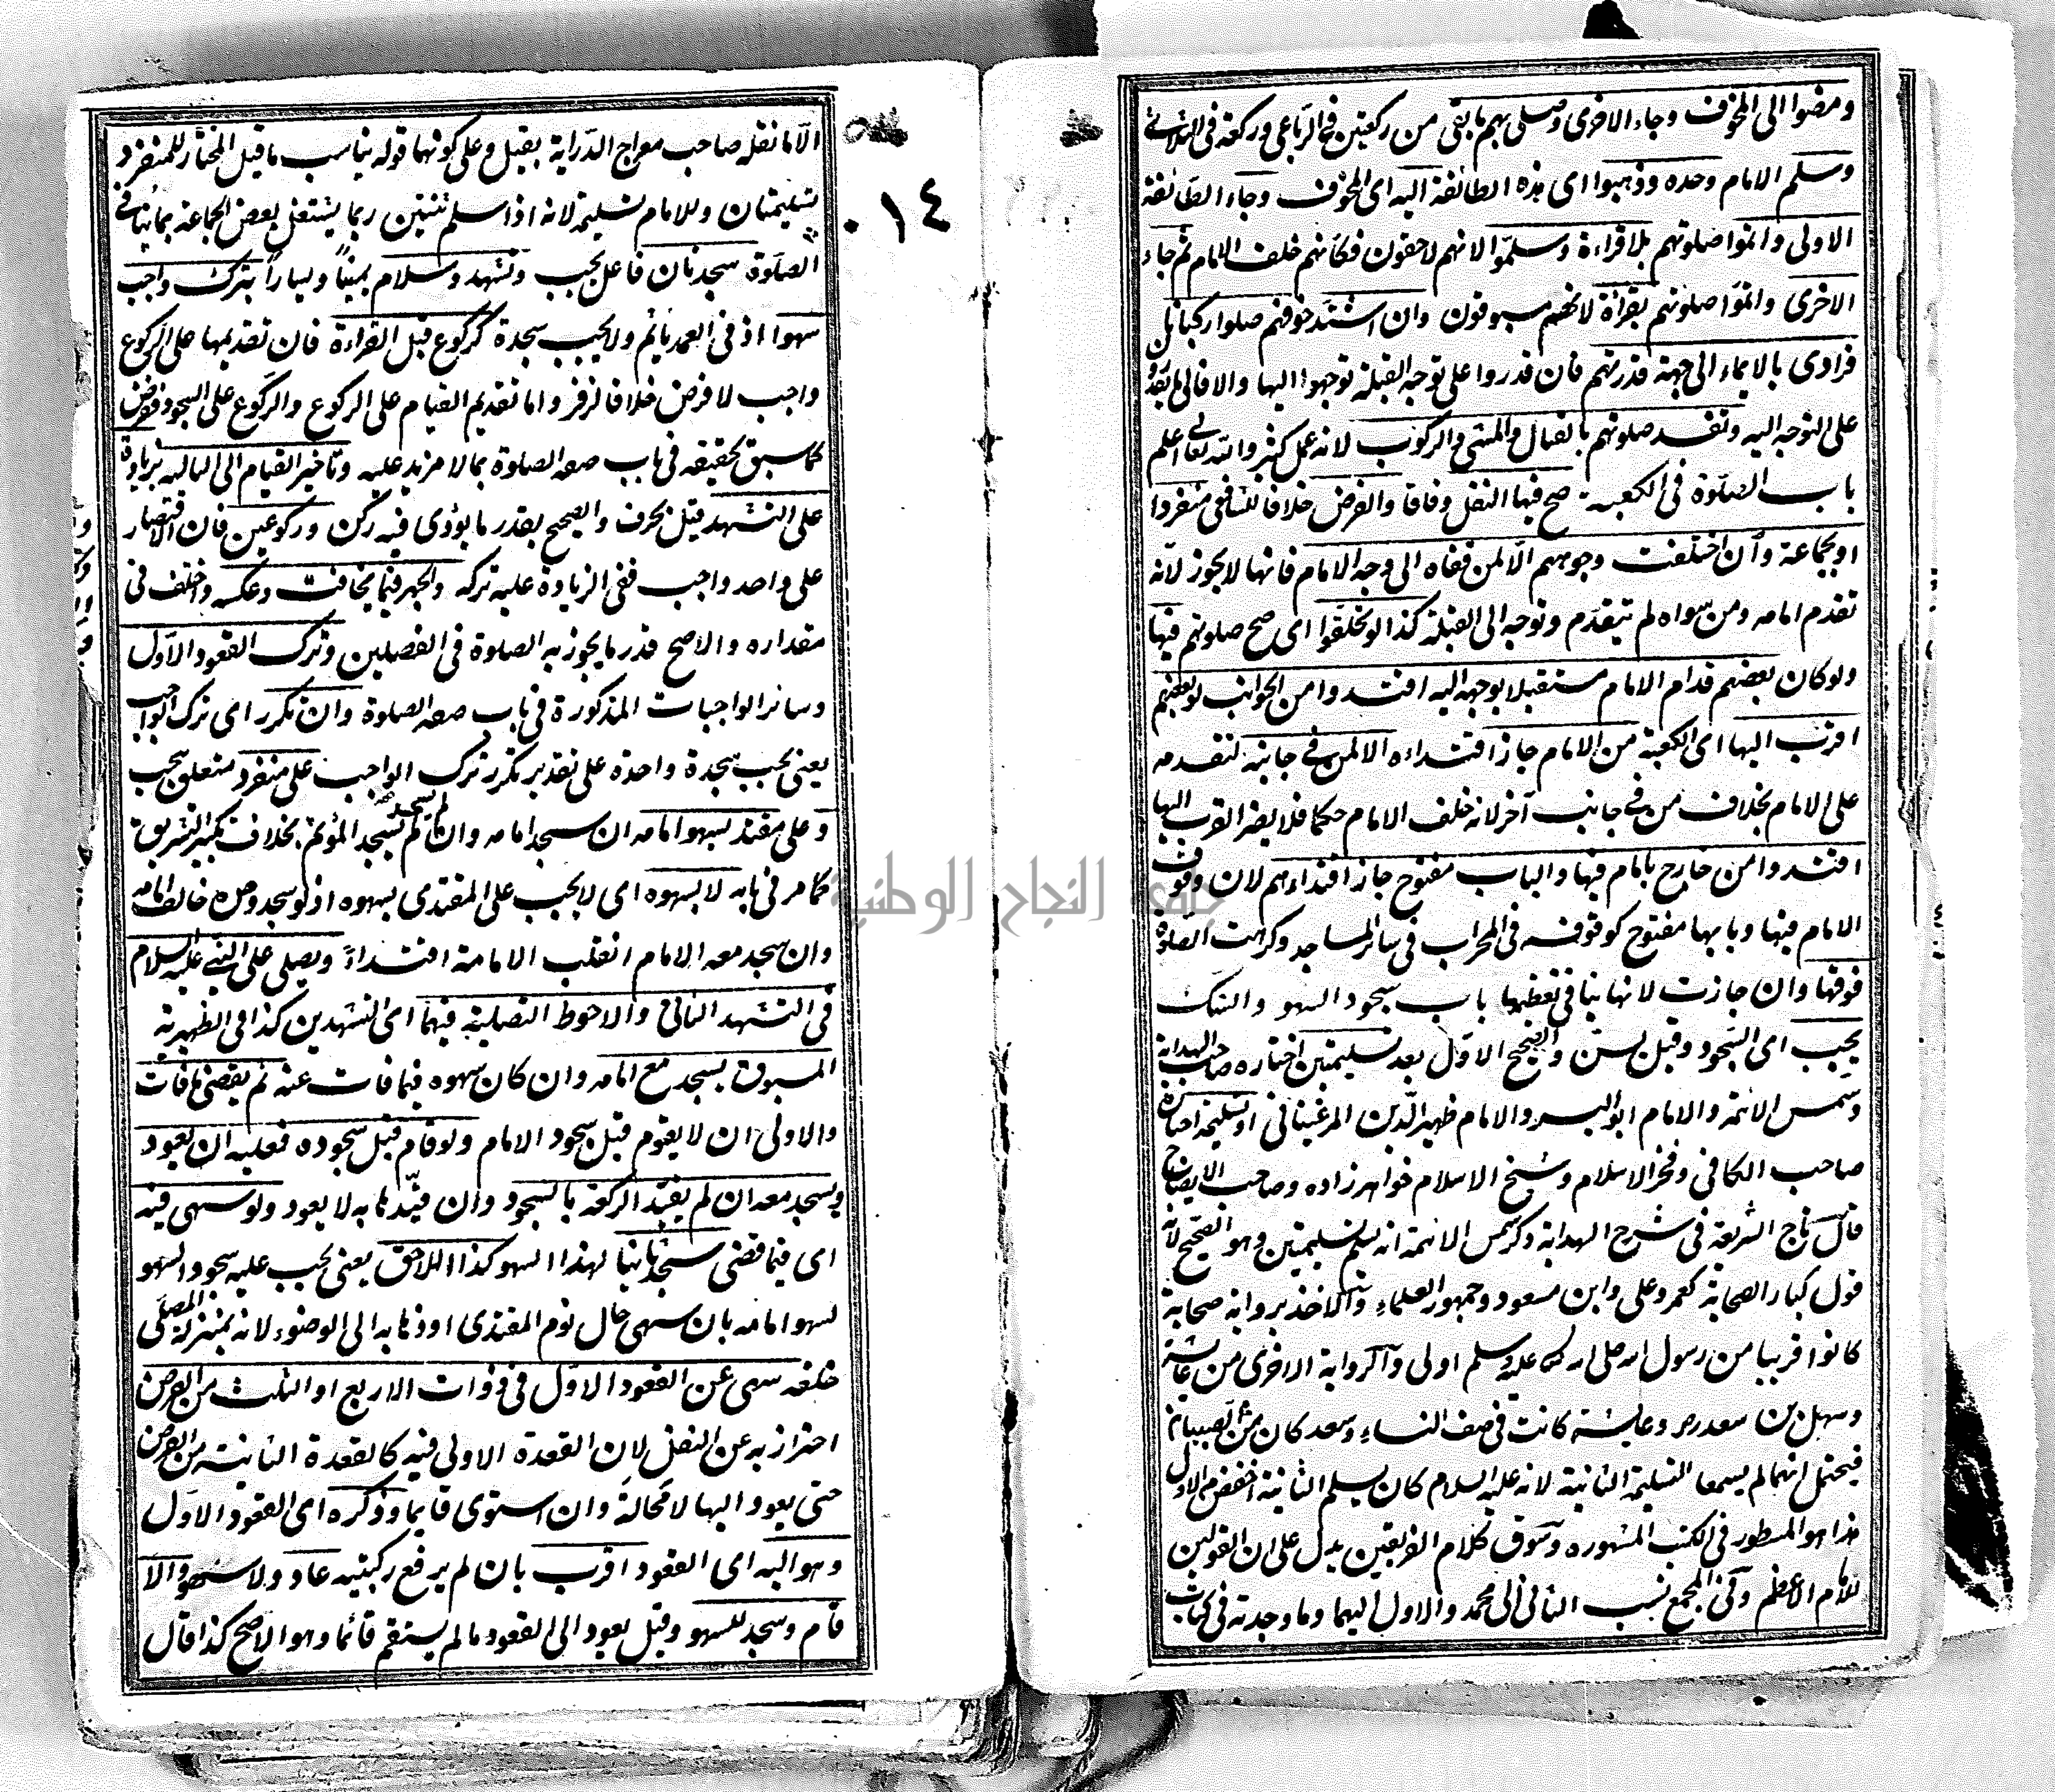 ومضوا الى المخوف وجاء الاخرى وصلى بهم ما بقى من ركعتين في الرباعى وركعة فى الثلاثى
وسلم الامام وحده وذهبوا اى هذه الطائفة اليه اى المخوف وجاء الطائفة
الاولى واتموا صلوتهم بلا قراءة وسلموا لانهم لاحقون فكانهم خلف الامام ثم جاء
الاخرى واتموا صلوتهم بقراءة لانهم مسبوقون وان اشتد خوفهم صلوا ركبانا
فرادى بالايماء الى جهة قدرتهم فان قدروا على توجه القبلة توجهوا اليها والا فالى ما يقدر
على التوجه اليه وتفسد صلوتهم بالقتال والمشى والركوب لانه عمل كثير والله تعالى اعلم
باب الصلوة فى الكعبة صح فيها النفل وفاقا والفرض خلافا للشافعى منفردا
او بجماعة وان اختلفت وجوههم الا لمن قفاه الى وجه الامام فانها لا يجوز لانه
تقدم امامه ومن سواه لم يتقدم وتوجه الى القبلة كذا لو تحلقوا اى صح صلوتهم فيها
ولو كان بعضهم قدام الامام مستقبلا بوجهه اليه اقتدوا من الجوانب لو بعضهم
اقرب اليها اى الكعبة من الامام جاز اقتداءه الا لمن فى جانبه لتقدمه
على الامام بخلاف من فى جانب آخر لانه خلف الامام حكما فلا يضر القرب اليها
اقتدوا من خارج بامام فيها والباب مفتوح جاز اقتداءهم لان وقوف
الامام فيها وبابها مفتوح كوقوفه فى المحراب فى سائر المساجد وكرهت الصلوة
فوقها وان جازت لانها ينافى تعظيمها باب سجود السهو والشك
يجب اى السجود وقيل يسن والصحيح الاول بعد تسليمتين اختاره صاحب الهداية
وشمس الائمة والامام ابو اليسر والامام ظهير الدين المرغينانى او تسليمة اختاره
صاحب الكافى وفخر الاسلام وشيخ الاسلام خواهر زاده وصاحب الايضاح
قال تاج الشريعة فى شرح الهداية وذكر شمس الائمة انه يسلم تسليمتين وهو الصحيح لانه
قول كبار الصحابة كعمر وعلى وابن مسعود وجمهور العلماء والاخذ برواية صحابة
كانوا قريبا من رسول الله صلى الله عليه وسلم اولى وآكد رواية الاخرى من عائشة
وسهل بن سعد رض وعائشة كانت فى صف النساء وسعد كان من الصبيان
فيحتمل انهما لم يسمعا التسليمة الثانية لانه عليه السلام كان يسلم الثانية اخفض من الاول
هذا هو المسطور فى الكتب المشهوره وسوق كلام الفريقين يدل على ان القولين
للامام الاعظم وفى المجمع نسب الثانى الى محمد والاول اليهما وما وجدته فى كتاب
٠١٤
الا ما نقله صاحب معراج الدراية بقيل وعلى كونهما قوله يناسب ما قيل المختار للمنفرد
تسليمتان وللامام تسليمة لانه اذا سلم ثنتين ربما يشتغل بعض الجماعة بما ينافى
الصلوة سجدتان فاعل يجب وتشهد وسلام يمينا ويسارا بترك واجب
سهوا اذ فى العمد ياثم ولا يجب سجدة كركوع قبل القراءة فان تقديمها على الركوع
واجب لا فرض خلافا لزفر واما تقديم القيام على الركوع والركوع على السجود ففرض
كما سبق تحقيقه فى باب صفة الصلوة بما لا مزيد عليه وتاخير القيام الى الثالثة بزيادة
على التشهد قيل بحرف والصحيح بقدر ما يؤدى فيه ركن وركوعين فان الاقتصار
على واحد واجب ففى الزيادة عليه تركه والجهر فيما يخافت وعكسه واختلف فى
مقداره والاصح قدر ما يجوز به الصلوة فى الفصلين وترك القعود الاول
وسائر الواجبات المذكورة فى باب صفة الصلوة وان تكرر اى ترك الواجب
يعنى يجب سجدة واحدة على تقدير تكرر ترك الواجب على منفرد متعلق بيجب
وعلى مقتد بسهو امامه ان سجد امامه وان لم يسجد لم يسجد المؤتم بخلاف تكبير التشريق
كما مر فى بابه لا بسهوه اى لا يجب على المقتدى بسهوه اذ لو سجد وحده خالف امامه
وان سجد معه الامام انقلب الامامة اقتداء ويصلى على النبى عليه السلام
فى التشهد الثانى والاحوط التصلية فيهما اى التشهدين كذا فى الظهيرية
المسبوق يسجد مع امامه وان كان سهوه فيما فات عنه ثم يقضى ما فات
والاولى ان لا يقوم قبل سجود الامام ولو قام قبل سجوده فعليه ان يعود
ويسجد معه ان لم يقيد الركعة بالسجود وان قيدها به لا يعود ولو سهى فيه
اى فيما قضى سجد ثانيا لهذا السهو كذا اللاحق يعنى يجب عليه سجود السهو
لسهو امامه بان سهى حال نوم المقتدى او ذهابه الى الوضوء لانه بمنزلة المصلى
خلفه سهى عن القعود الاول فى ذوات الاربع او الثلث من الفرض
احتراز به عن النفل لان القعدة الاولى فيه كالقعدة الثانية من الفرض
حتى يعود اليها لا محالة وان استوى قايما وذكره اى القعود الاول
وهو اليه اى القعود اقرب بان لم يرفع ركبتيه عاد ولا سهو والا
قام وسجد للسهو وقيل يعود الى القعود ما لم يستقم قائما وهو الاصح كذا قال
جامعة النجاح الوطنية